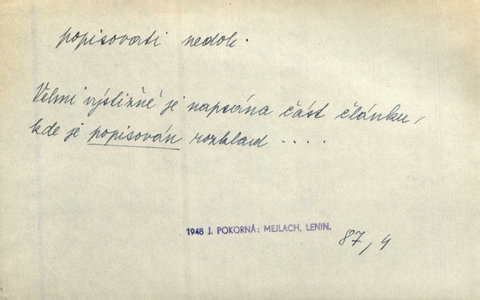 popisovati nedok.
Velmi výstižně je napsána část článku,
kde je popisován rozklad ....
1948 J. POKORNÁ: MEJLACH, LENIN.
87,4